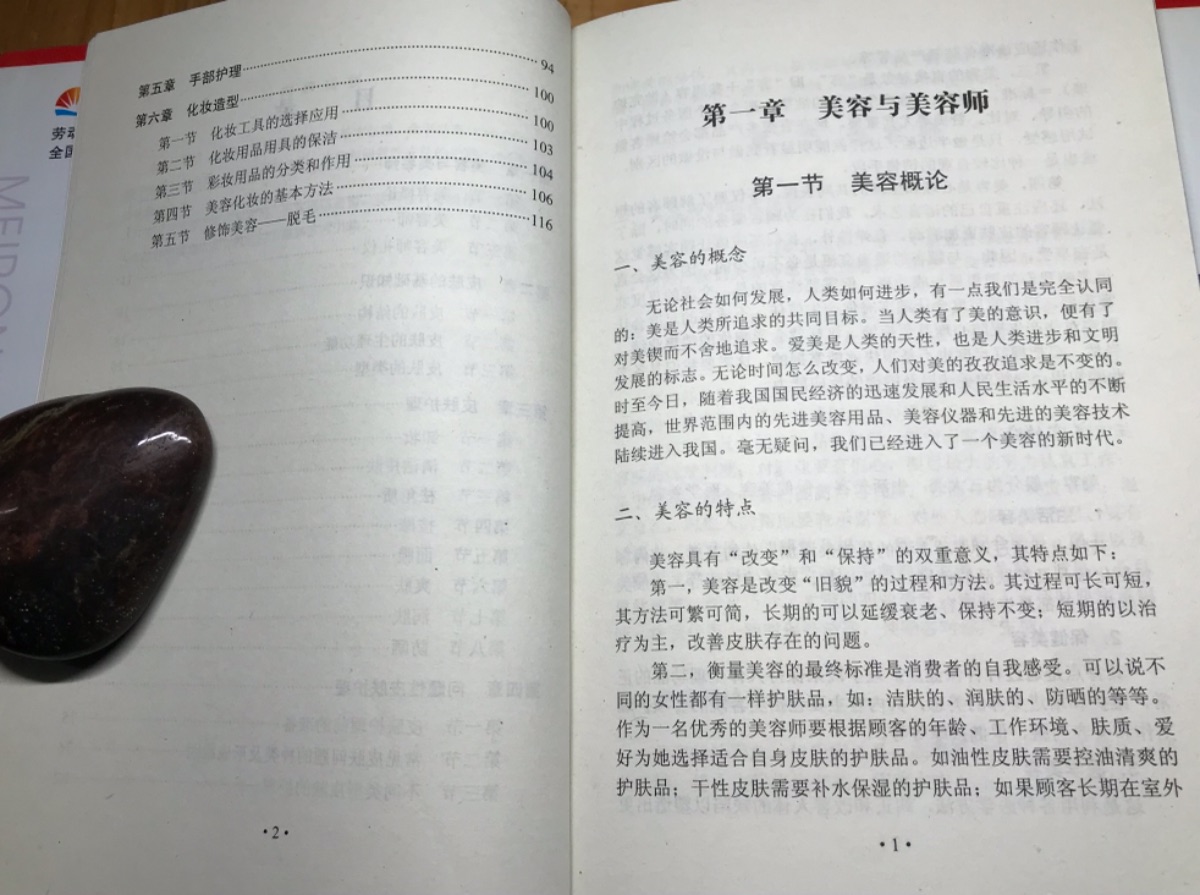 劳动
全国
MEIRON
第五章 手部护理……94
第六章 化妆造型……100
第一节 化妆工具的选择应用……100
第二节 化妆用品用具的保洁……103
第三节 彩妆用品的分类和作用……104
第四节 美容化妆的基本方法……106
第五节 修饰美容——脱毛……116
·2·
第一章 美容与美容师
第一节 美容概论
一、美容的概念
无论社会如何发展，人类如何进步，有一点我们是完全认同
的：美是人类所追求的共同目标。当人类有了美的意识，便有了
对美锲而不舍地追求。爱美是人类的天性，也是人类进步和文明
发展的标志。无论时间怎么改变，人们对美的孜孜追求是不变的。
时至今日，随着我国国民经济的迅速发展和人民生活水平的不断
提高，世界范围内的先进美容用品、美容仪器和先进的美容技术
陆续进入我国。毫无疑问，我们已经进入了一个美容的新时代。
二、美容的特点
美容具有“改变”和“保持”的双重意义，其特点如下：
第一，美容是改变“旧貌”的过程和方法。其过程可长可短，
其方法可繁可简，长期的可以延缓衰老、保持不变；短期的以治
疗为主，改善皮肤存在的问题。
第二，衡量美容的最终标准是消费者的自我感受。可以说不
同的女性都有一样护肤品，如：洁肤的、润肤的、防晒的等等。
作为一名优秀的美容师要根据顾客的年龄、工作环境、肤质、爱
好为她选择适合自身皮肤的护肤品。如油性皮肤需要控油清爽的
护肤品；干性皮肤需要补水保湿的护肤品；如果顾客长期在室外
·1·